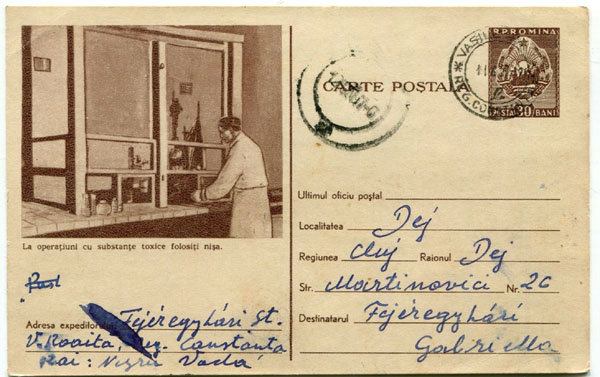 R.P.ROMINA
CARTE POSTALĂ
POSTA 30 BANI
La operațiuni cu substanțe toxice folosiți nișa.
Ultimul oficiu poștal
Localitatea Dej
Regiunea Cluj Raionul Dej
Str. Martinovici Nr. 26
Destinatarul Fejéregyhári
Gabriella
Adresa expeditorului Fejéregyhári St.
V. Roaita, Reg. Constanta
Rai: Negru Vodă